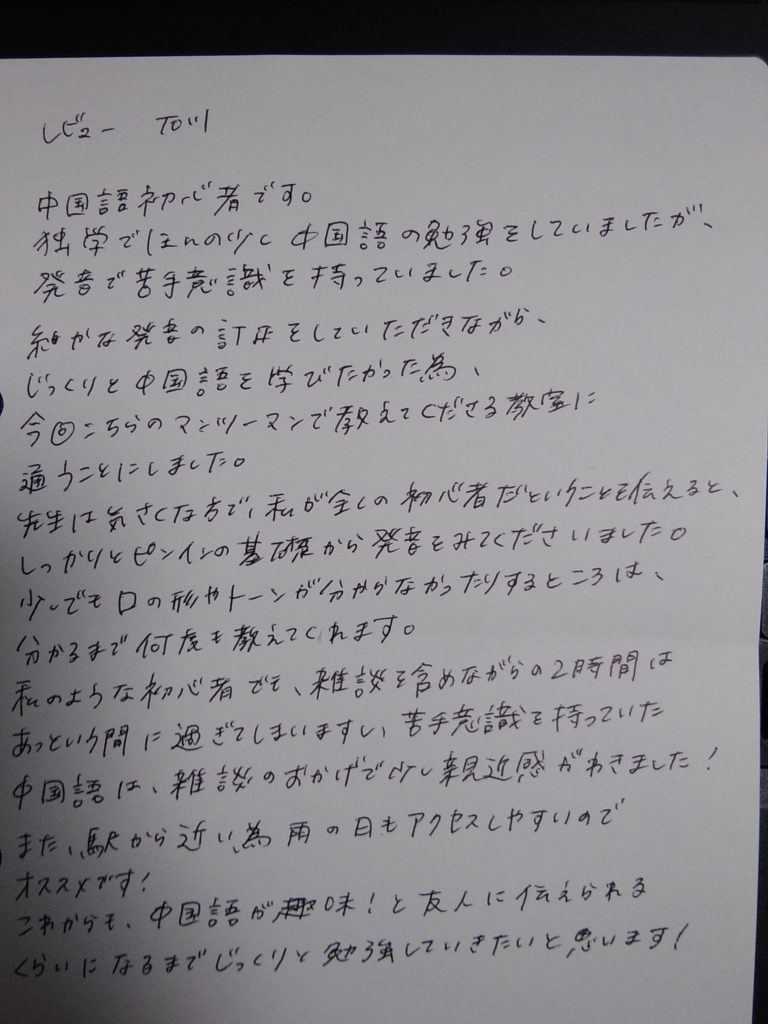 レビュー
中国語初心者です。
独学でほんの少し中国語の勉強をしていましたが、
発音で苦手意識を持っていました。
細かな発音の訂正をしていただきながら、
じっくりと中国語を学びたかった為、
今回こちらのマンツーマンで教えてくださる教室に
通うことにしました。
先生は気さくな方で、私が全くの初心者だということを伝えると、
しっかりとピンインの基礎から発音をみてくださいました。
少しでも口の形やトーンが分からなかったりするところは、
分かるまで何度も教えてくれます。
私のような初心者でも、雑談を含めながらの2時間は
あっという間に過ぎてしまいますし、苦手意識を持っていた
中国語は、雑談のおかげで少し親近感がわきました！
また、駅から近い為雨の日もアクセスしやすいので
オススメです！
これからも、中国語が趣味！と友人に伝えられる
くらいになるまでじっくりと勉強していきたいと思います！